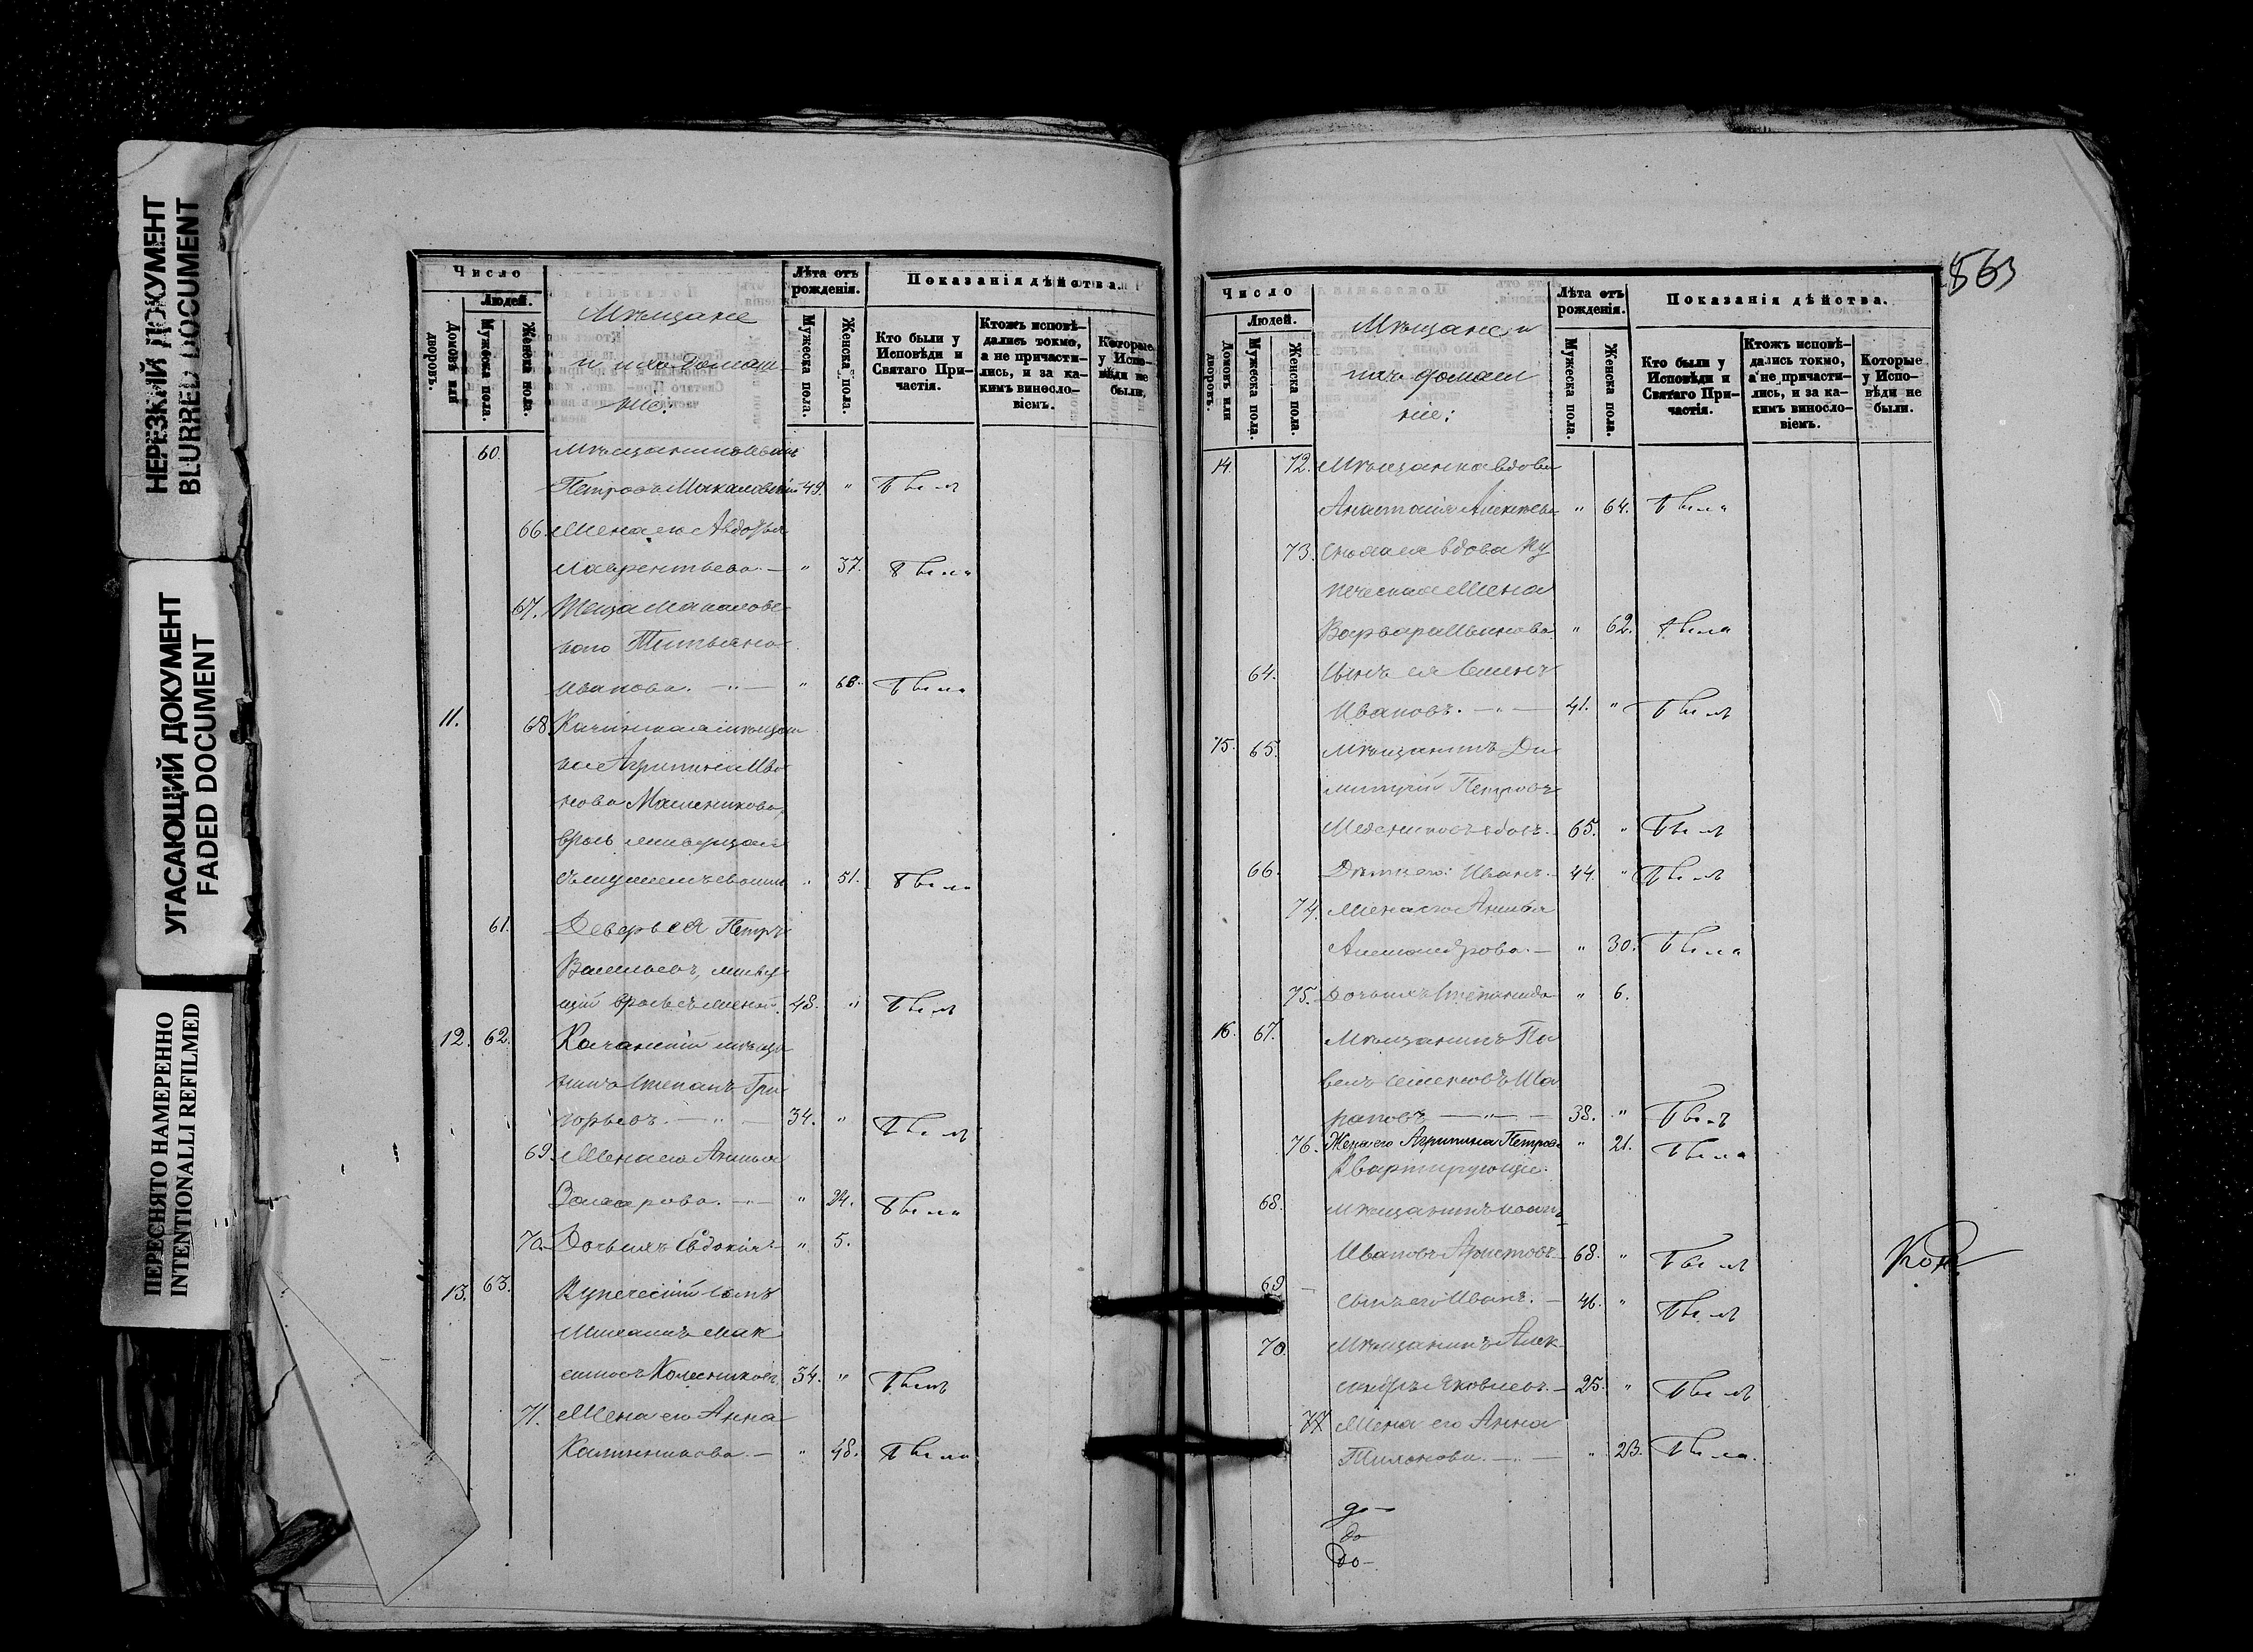 НЕРЕЗКИЙ ДОКУМЕНТ
BLURRED DOCUMENT
УГАСАЮЩИЙ ДОКУМЕНТ
FADED DOCUMENT
ПЕРЕСНЯТО НАМЕРЕННО
INTENTIONALLI REFILMED
Число
Людей.
Домовъ или дворовъ.
Мужеска пола.
Женска пола.
Мѣщане
и ихъ домаш-
ніе:
Лѣта отъ рожденія.
Мужеска пола.
Женска пола.
Показанія дѣйства.
Кто были у
Исповѣди и
Святаго При-
частія.
Ктожъ исповѣ-
дались токмо,
а не причасти-
лись, и за ка-
кимъ виносло-
віемъ.
Которые
у Испо-
вѣди не
были.
60. Мѣщанинъ
Петровъ 49. " былъ
66. Жена его Авдотья
Лаврентьева. — " 37. была
67. Теща
Татьяна
Иванова. — " — " 68. была
11. 68.
Агрипина Ива
нова
" 51. была
61. Деверь ея Петръ
Васильевъ,
48. " былъ
12. 62. мѣща
нинъ Степанъ Гри
горьевъ. — " — 34. " былъ
69. Жена его
" 24. была
70. Дочь ихъ Евдокія — " 5.
13. 63. Купеческій сынъ
Михаилъ Мак
симовъ Колесниковъ 34. " былъ
71. Жена его Анна
Калинникова. — " 48. была
863
Число
Людей.
Домовъ или дворовъ.
Мужеска пола.
Женска пола.
Мѣщане и
ихъ домаш
ніе:
Лѣта отъ рожденія.
Мужеска пола.
Женска пола.
Показанія дѣйства.
Кто были у
Исповѣди и
Святаго При-
частія.
Ктожъ исповѣ-
дались токмо,
а не причасти-
лись, и за ка-
кимъ виносло-
віемъ.
Которые
у Испо-
вѣди не
были.
14. 72. Мѣщанка вдова
Анастасія Алексѣева " 64. была
73. вдова Ку
печеская жена
Варвара Иванова " 62. была
64. Сынъ ея Семенъ
Ивановъ. — " — 41. " былъ
15. 65. Мѣщанинъ Ди
митрій Петровъ
65. " былъ
66. Дѣти его: Иванъ. 44. " былъ
74. Жена его
Александрова. — " 30. была
75. Дочь ихъ Степанида " 6.
16. 67. Мѣщанинъ Па
велъ Семеновъ Ша
раповъ — " — 38. " былъ
76. Жена его Агрипина Петрова " 21. была
Квартирующіе:
68. Мѣщанинъ
Ивановъ 68. " былъ
69 Сынъ его Иванъ. — 46. " былъ
70. Мѣщанинъ Алек
сандръ Яковлевъ. — 25. " былъ
77 Жена его Анна
" 23. была.
до —
до
до —